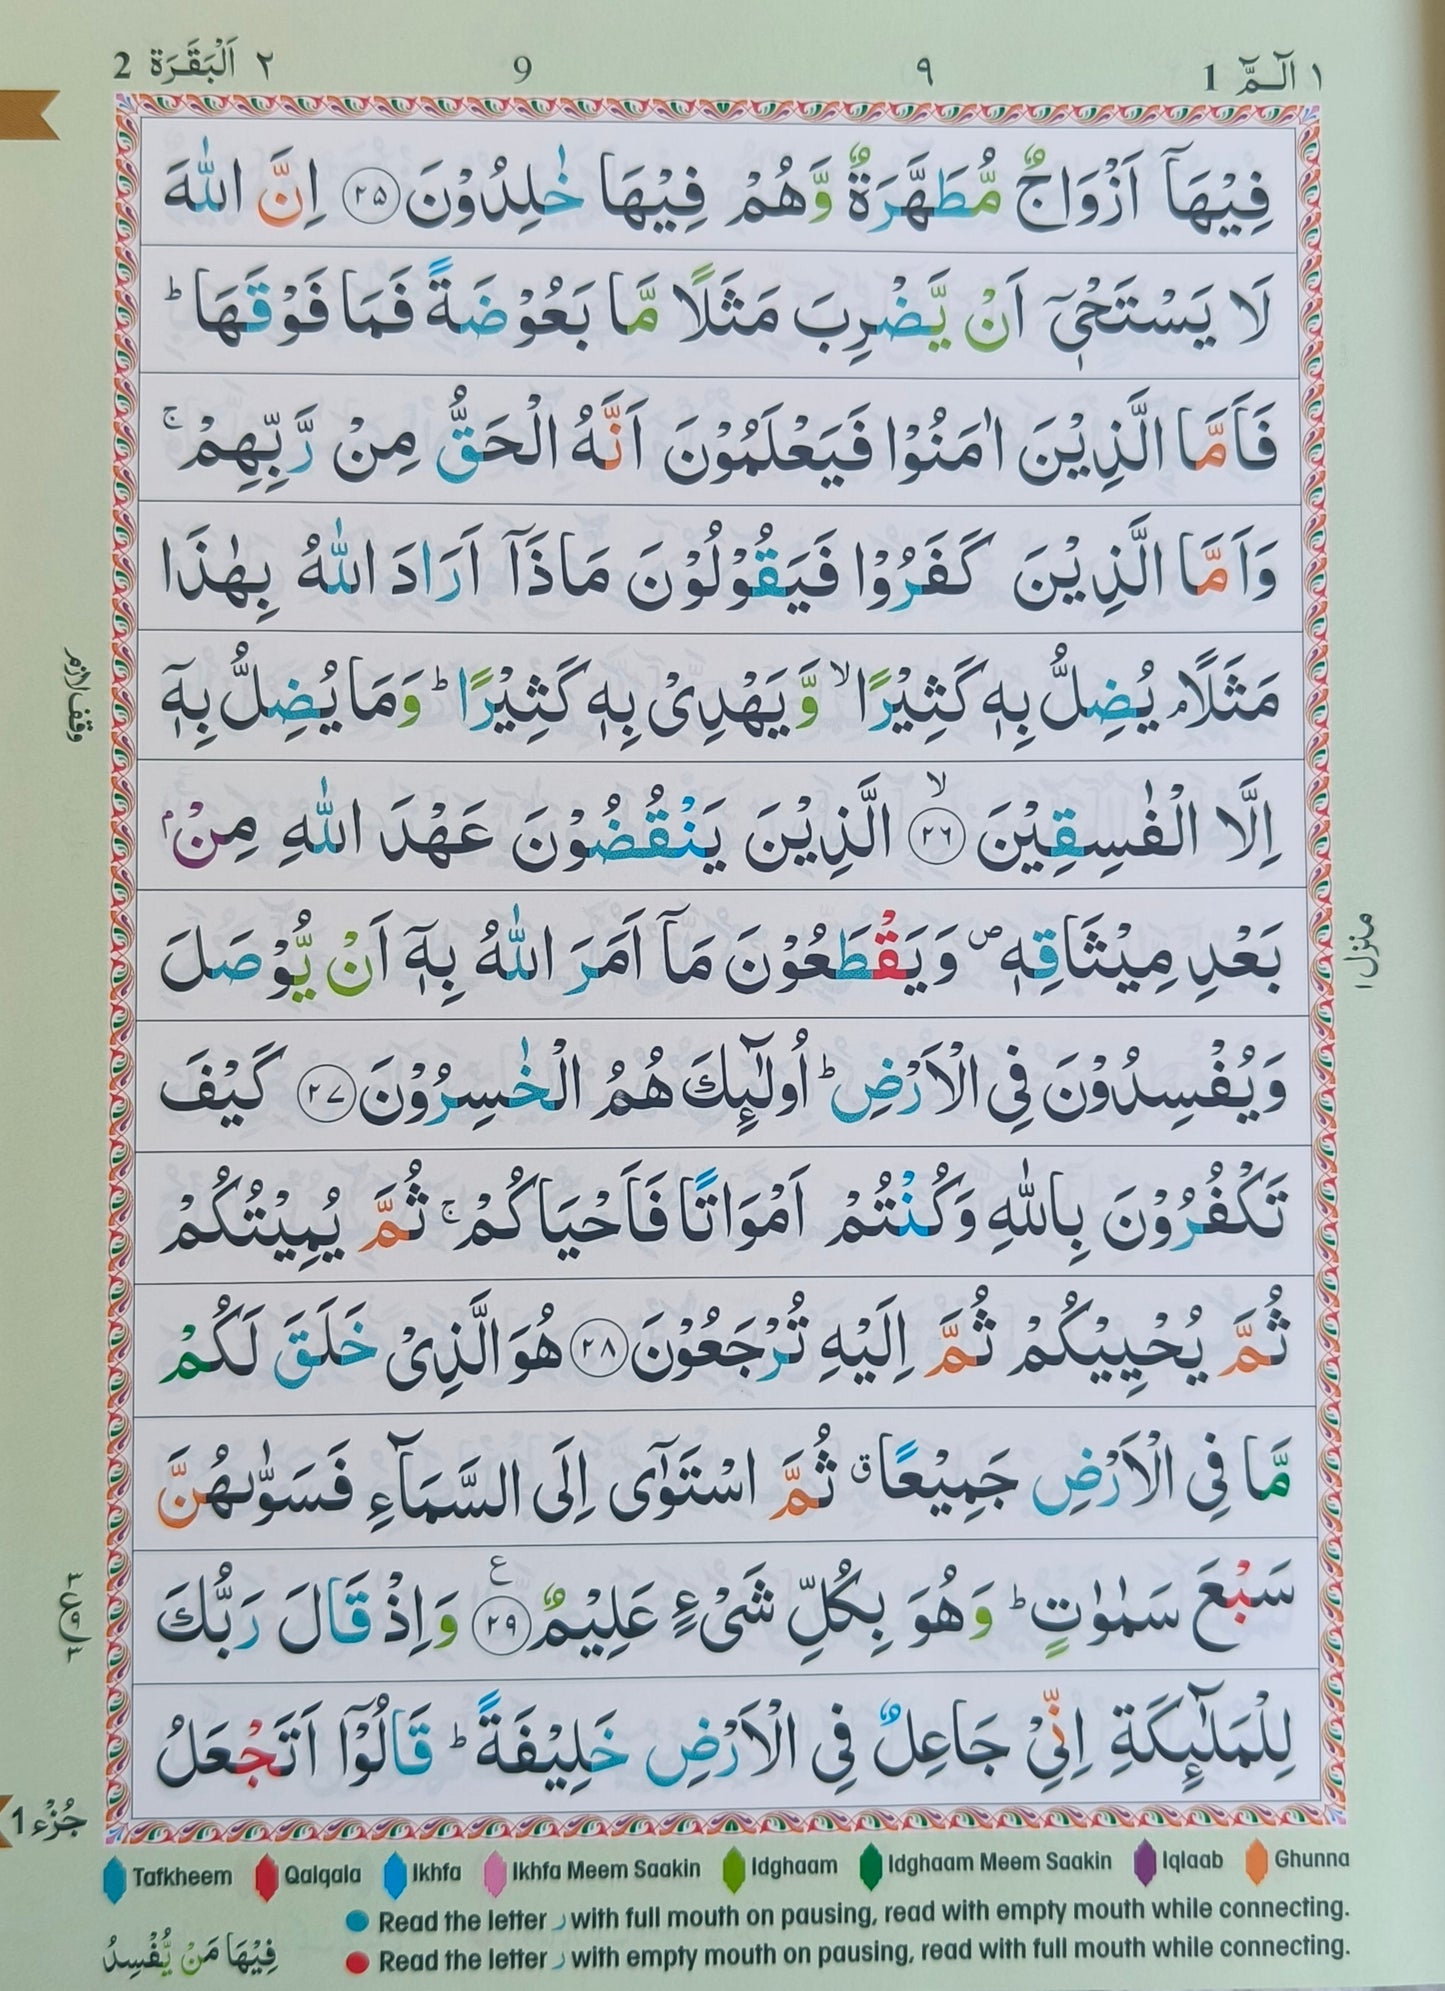 ١ الٓـمّٓ 1 ٩ 9 ٢ اَلْبَقَرَة 2
فِيْهَآ اَزْوَاجٌ مُّطَهَّرَةٌ وَّهُمْ فِيْهَا خٰلِدُوْنَ ﴿٢٥﴾ اِنَّ اللّٰهَ
لَا يَسْتَحْيٖٓ اَنْ يَّضْرِبَ مَثَلًا مَّا بَعُوْضَةً فَمَا فَوْقَهَا ؕ
فَاَمَّا الَّذِيْنَ اٰمَنُوْا فَيَعْلَمُوْنَ اَنَّهُ الْحَقُّ مِنْ رَّبِّهِمْ ۚ
وَاَمَّا الَّذِيْنَ كَفَرُوْا فَيَقُوْلُوْنَ مَاذَآ اَرَادَ اللّٰهُ بِهٰذَا
وقف لازم
مَثَلًا ۘ يُضِلُّ بِهٖ كَثِيْرًا ۙ وَّيَهْدِيْ بِهٖ كَثِيْرًا ؕ وَمَا يُضِلُّ بِهٖٓ
اِلَّا الْفٰسِقِيْنَ ۙ ﴿٢٦﴾ الَّذِيْنَ يَنْقُضُوْنَ عَهْدَ اللّٰهِ مِنْۢ
بَعْدِ مِيْثَاقِهٖ ۪ وَيَقْطَعُوْنَ مَآ اَمَرَ اللّٰهُ بِهٖٓ اَنْ يُّوْصَلَ
منزل ١
وَيُفْسِدُوْنَ فِى الْاَرْضِ ؕ اُولٰٓئِكَ هُمُ الْخٰسِرُوْنَ ﴿٢٧﴾ كَيْفَ
تَكْفُرُوْنَ بِاللّٰهِ وَكُنْتُمْ اَمْوَاتًا فَاَحْيَاكُمْ ۚ ثُمَّ يُمِيْتُكُمْ
ثُمَّ يُحْيِيْكُمْ ثُمَّ اِلَيْهِ تُرْجَعُوْنَ ﴿٢٨﴾ هُوَ الَّذِيْ خَلَقَ لَكُمْ
مَّا فِى الْاَرْضِ جَمِيْعًا ۗ ثُمَّ اسْتَوٰٓى اِلَى السَّمَآءِ فَسَوّٰىهُنَّ
سَبْعَ سَمٰوٰتٍ ؕ وَهُوَ بِكُلِّ شَىْءٍ عَلِيْمٌ ﴿٢٩﴾ ع وَاِذْ قَالَ رَبُّكَ
لِلْمَلٰٓئِكَةِ اِنِّيْ جَاعِلٌ فِى الْاَرْضِ خَلِيْفَةً ؕ قَالُوْٓا اَتَجْعَلُ
جُزْء 1
Tafkheem Qalqala Ikhfa Ikhfa Meem Saakin Idghaam Idghaam Meem Saakin Iqlaab Ghunna
Read the letter ر with full mouth on pausing, read with empty mouth while connecting.
Read the letter ر with empty mouth on pausing, read with full mouth while connecting.
فِيْهَا مَنْ يُّفْسِدُ